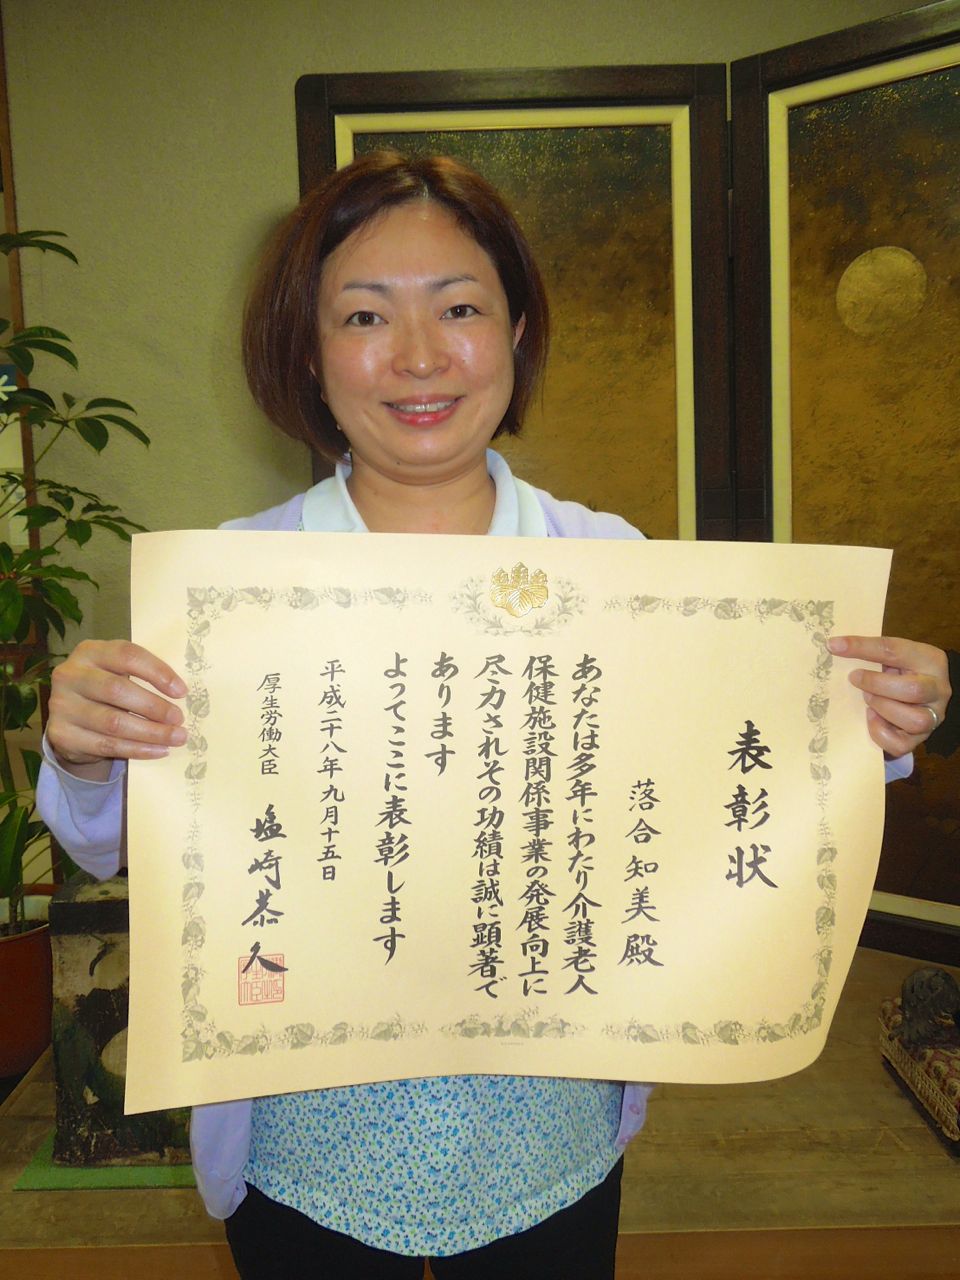 表彰状
落合知美殿
あなたは多年にわたり介護老人
保健施設関係事業の発展向上に
尽力されその功績は誠に顕著で
あります
よってここに表彰します
平成二十八年九月十五日
厚生労働大臣 塩崎恭久